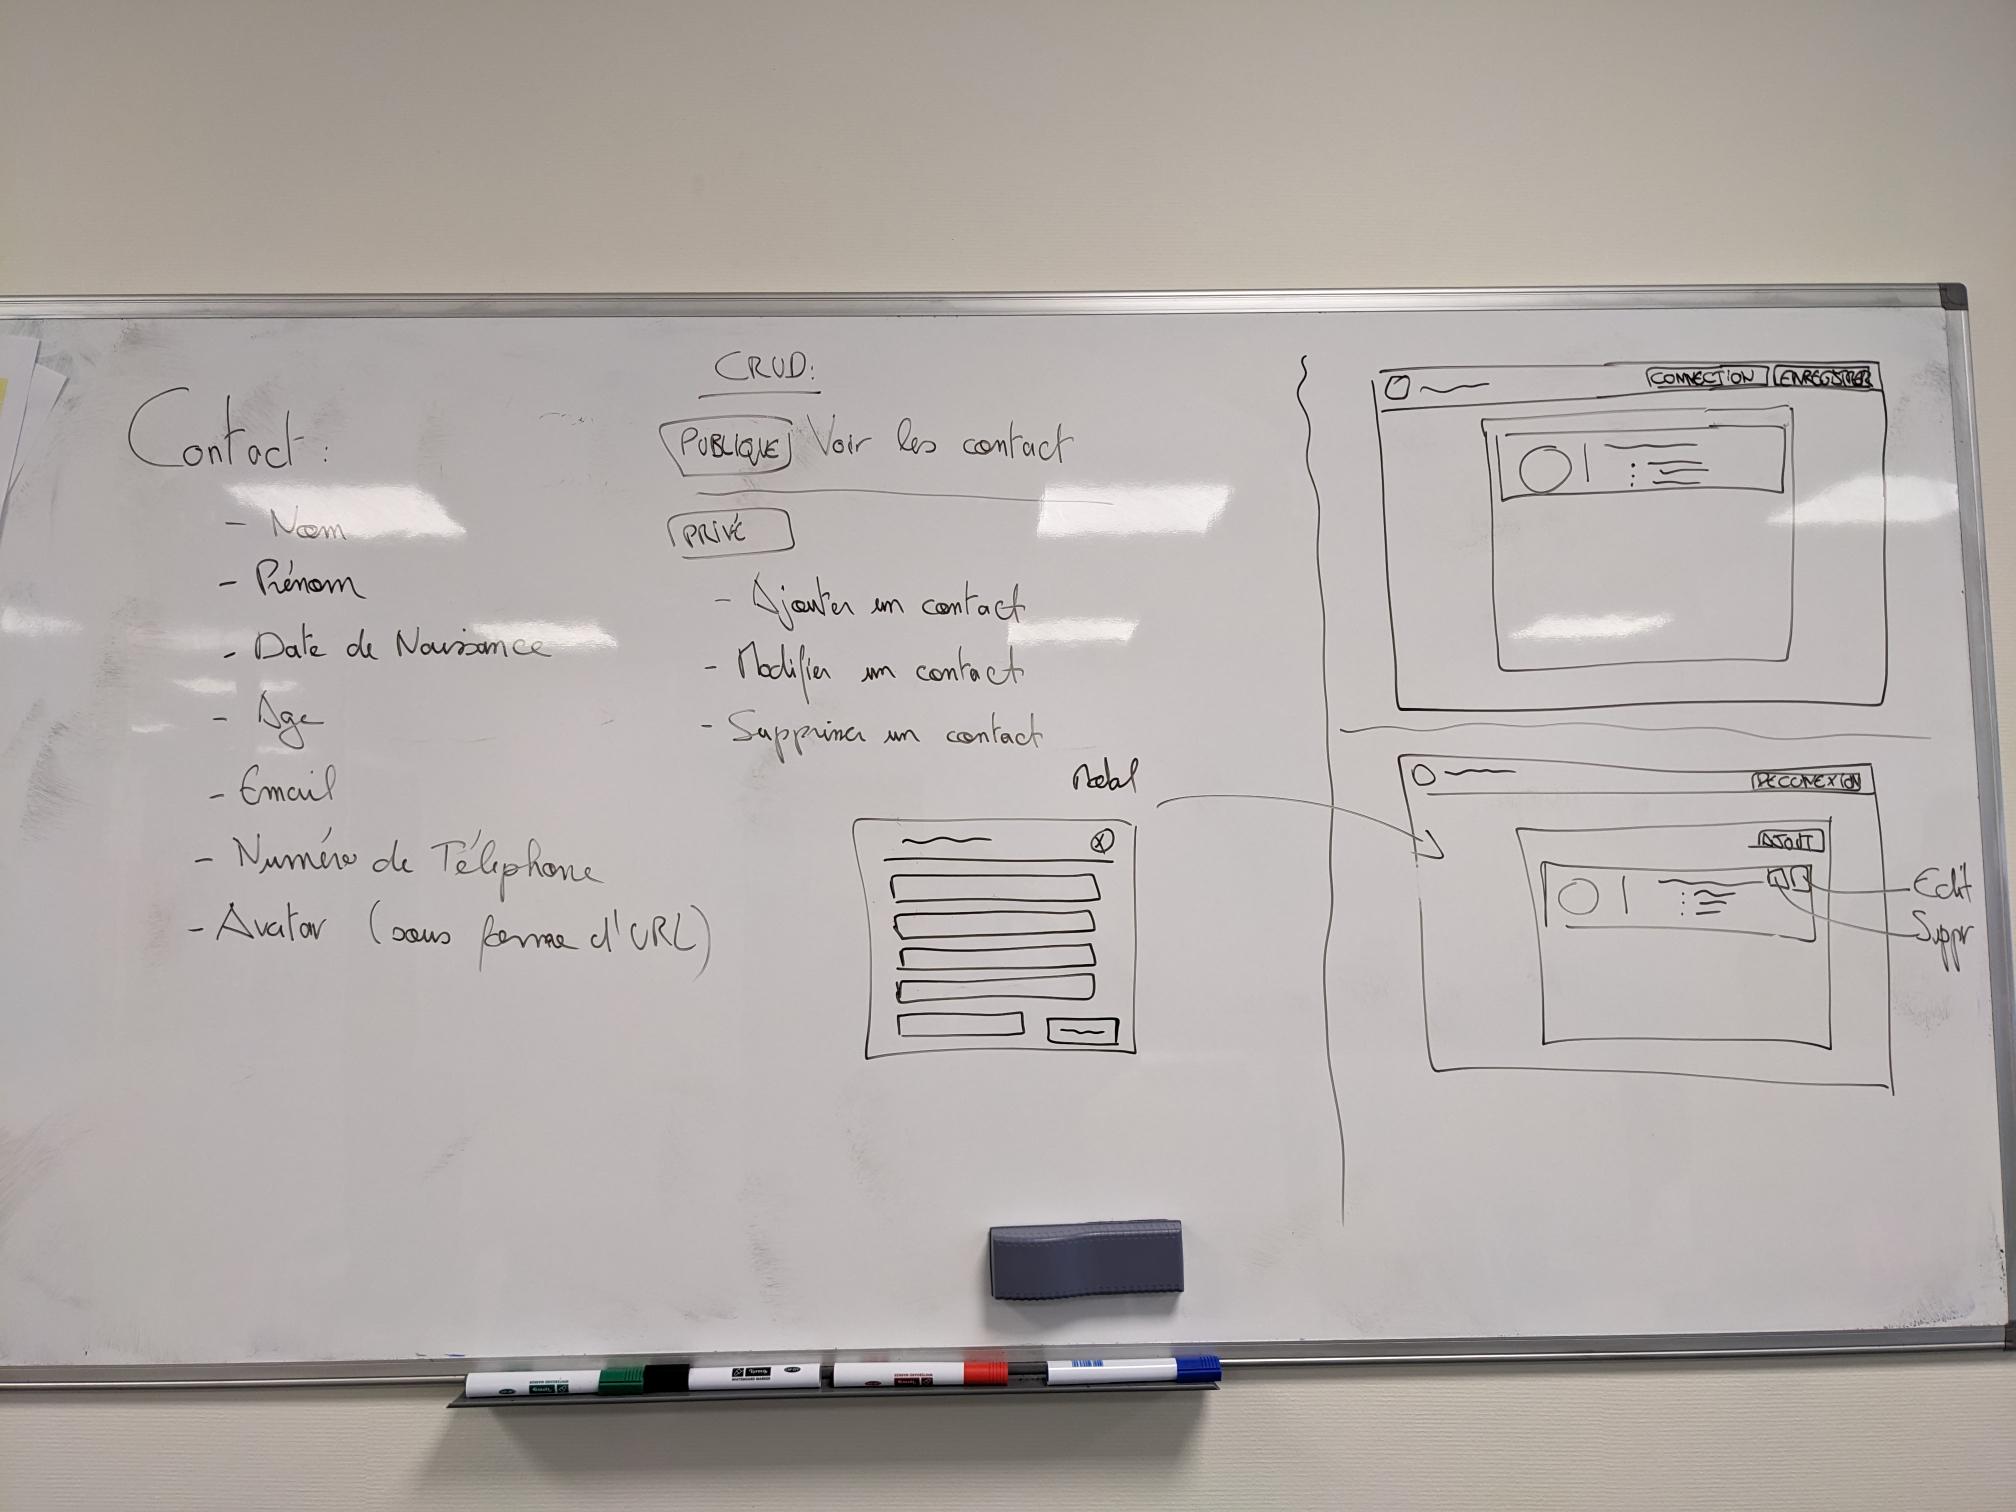 Contact :
- Nom
- Prénom
- Date de Naissance
- Age
- Email
- Numéro de Téléphone
- Avatar (sous forme d'URL)
CRUD:
PUBLIQUE Voir les contact
PRIVÉ
- Ajouter un contact
- Modifier un contact
- Supprimer un contact
Modal
X
CONNECTION ENREGISTRER
DECONEXION
AJOUT
Edit
Suppr